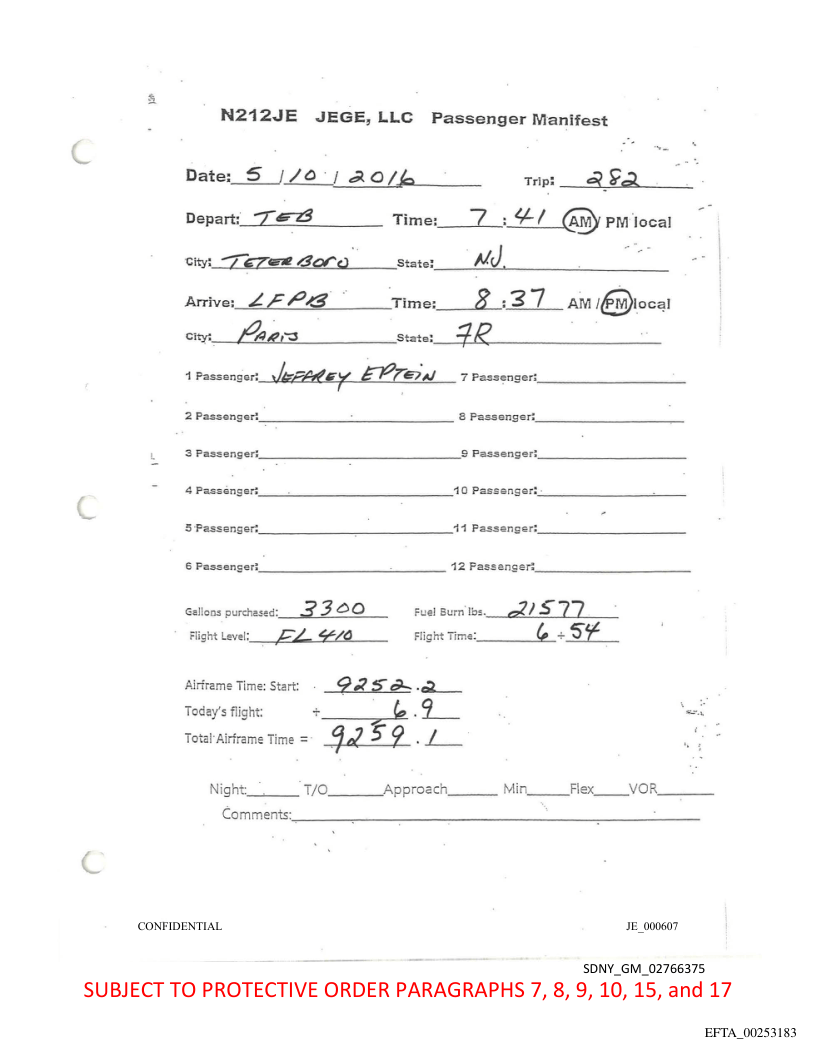 N212JE JEGE, LLC Passenger Manifest
Date: 5 / 10 / 2016 Trip: 282
Depart: TEB Time: 7 : 41 AM / PM local
City: TETERBORO State: N.J.
Arrive: LFPB Time: 8 : 37 AM / PM local
City: PARIS State: FR
1 Passenger: JEFFREY EPTEIN 7 Passenger:
2 Passenger: 8 Passenger:
3 Passenger: 9 Passenger:
4 Passenger: 10 Passenger:
5 Passenger: 11 Passenger:
6 Passenger: 12 Passenger:
Gallons purchased: 3300 Fuel Burn lbs. 21577
Flight Level: FL 410 Flight Time: 6 + 54
Airframe Time: Start: 9252.2
Today's flight: + 6.9
Total Airframe Time = 9259.1
Night: T/O Approach Min Flex VOR
Comments:
CONFIDENTIAL JE_000607
SDNY_GM_02766375
SUBJECT TO PROTECTIVE ORDER PARAGRAPHS 7, 8, 9, 10, 15, and 17
EFTA_00253183